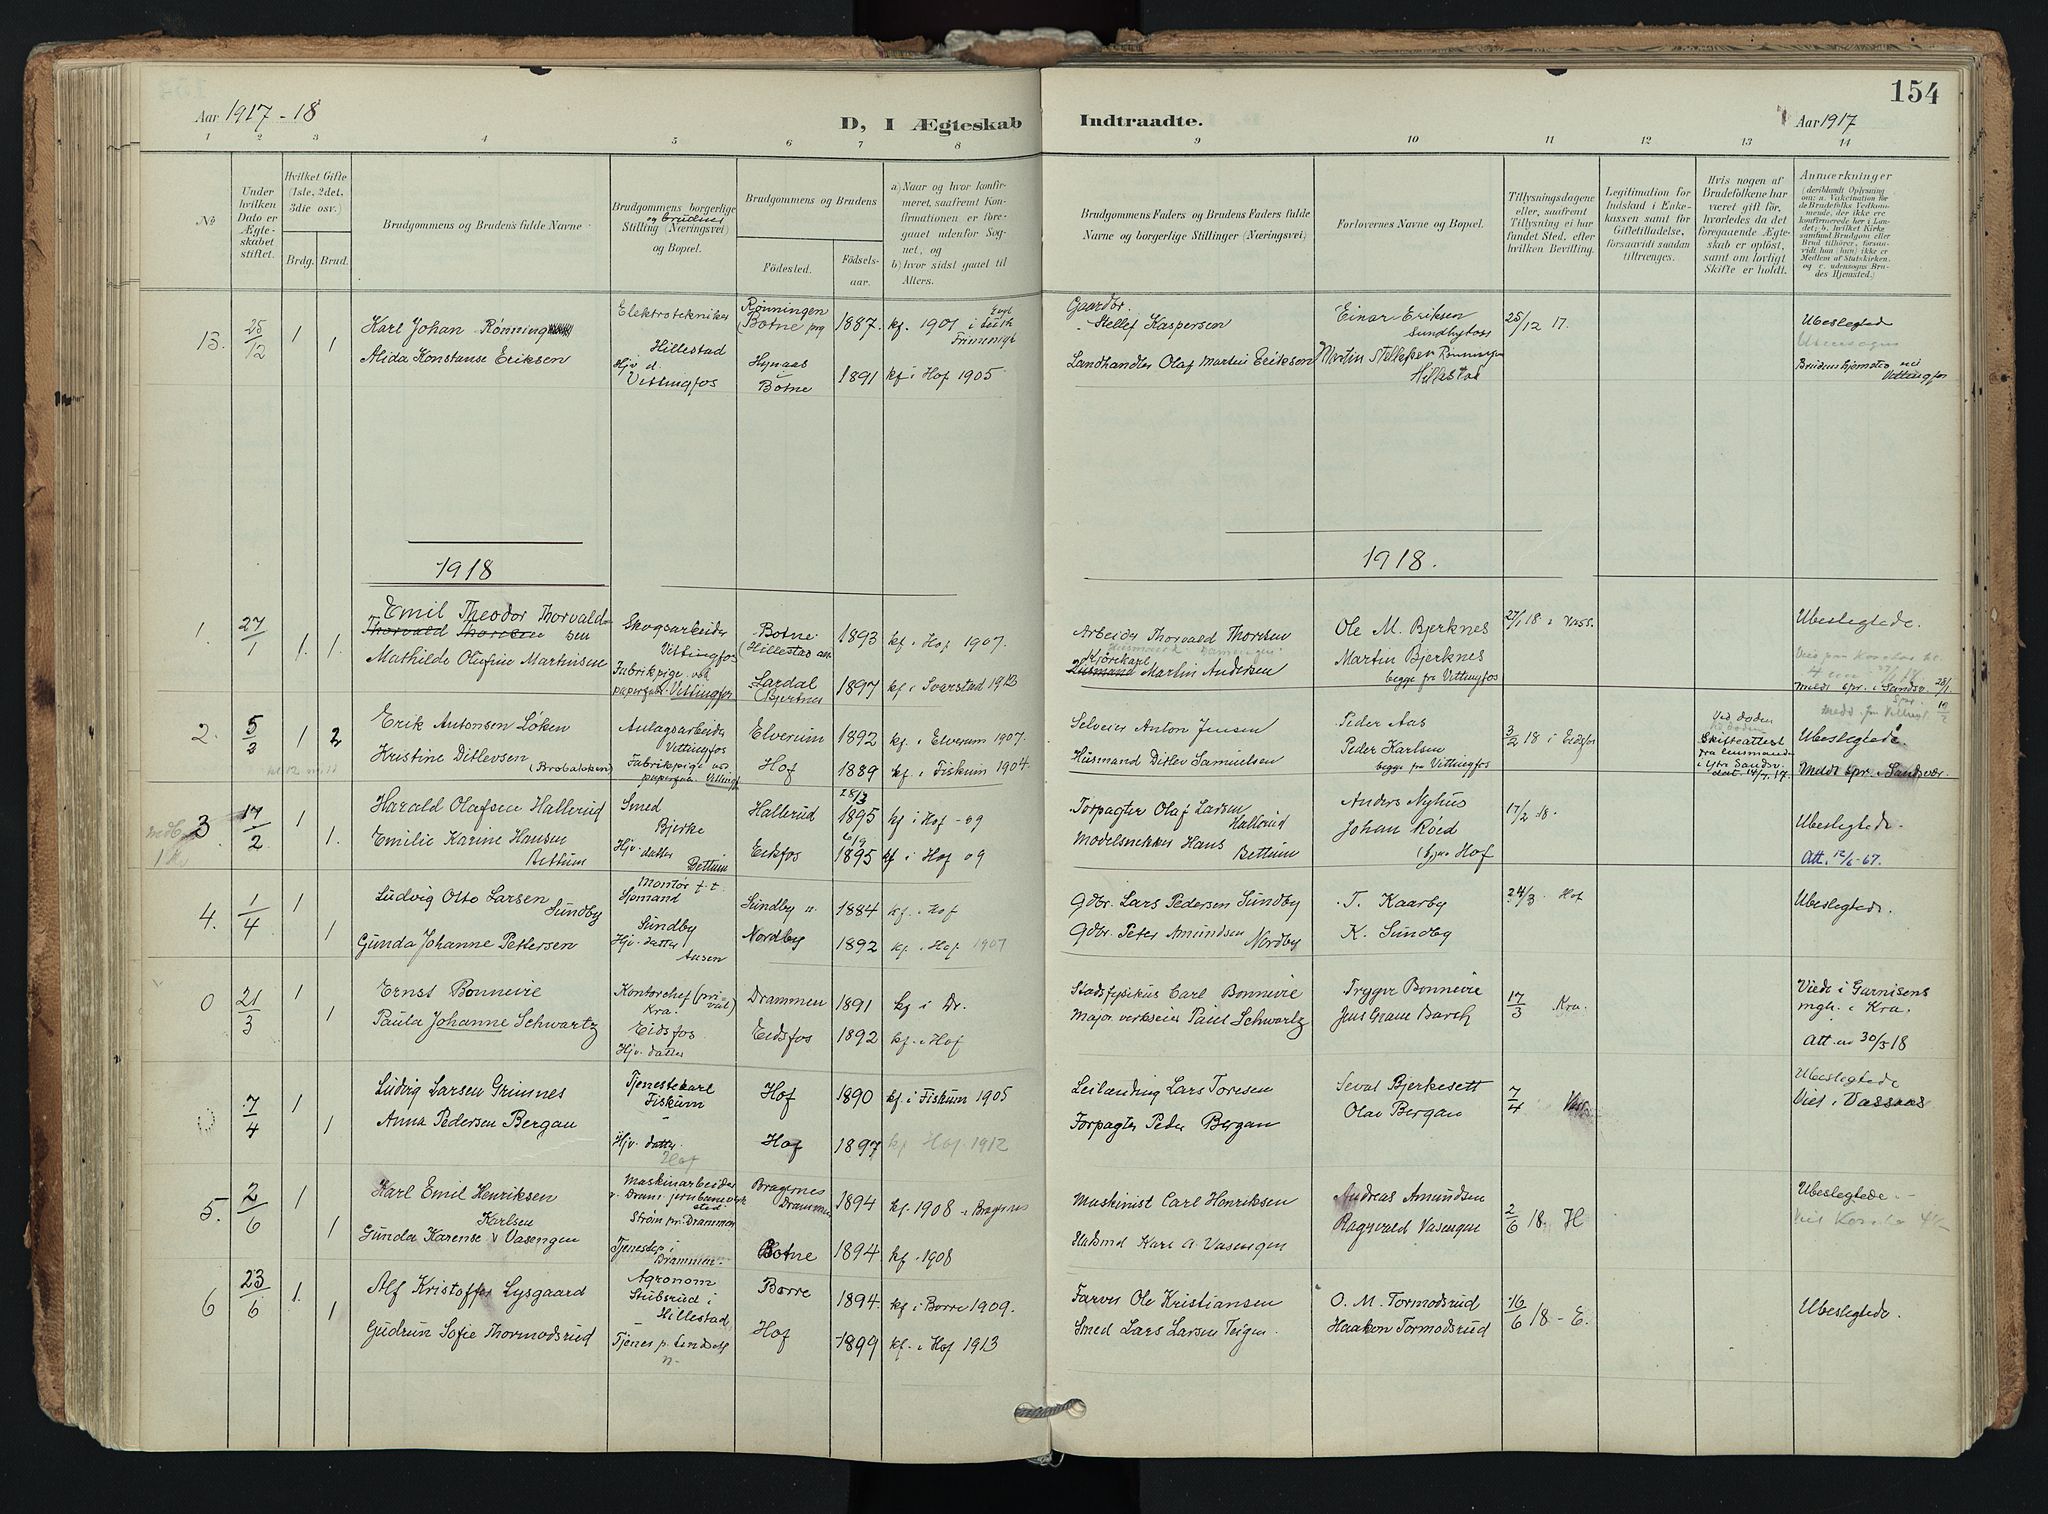 154
Aar 1917-18
D, I Ægteskab
Indtraadte.
Aar 1917
1 2 3 4 5 6 7 8 9 10 11 12 13 14
No
Under hvilken Dato er Ægteskabet stiftet.
Hvilket Gifte (1ste, 2det, 3die osv.)
Brdg. Brud.
Brudgommens og Brudens fulde Navne
Brudgommens borgerlige og brudens Stilling (Næringsvei) og Bopæl.
Brudgommens og Brudens
Fødested.
Fødselsaar.
a) Naar og hvor konfirmeret, saafremt Konfirmationen er foregaaet udenfor Sognet, og
b) hvor sidst gaaet til Alters.
Brudgommens Faders og Brudens Faders fulde Navne og borgerlige Stillinger (Næringsvei)
Forlovernes Navne og Bopæl.
Tillysningsdagene eller, saafremt Tillysning ei har fundet Sted, efter hvilken Bevilling.
Legitimation for Indskud i Enkekassen samt for Giftetilladelse, forsaavidt saadan tiltrænges.
Hvis nogen af Brudefolkene har været gift før, hvorledes da det foregaaende Ægteskab er opløst, samt om lovligt Skifte er holdt.
Anmærkninger
(deriblandt Oplysning om: a. Vakcination for de Brudefolks Vedkommende, der ikke ere konfirmerede her i Landet; b. hvilket Kirkesamfund Brudgom eller Brud tilhører, forsaavidt han (hun) ikke er Medlem af Statskirken, og c. udensogns Brudes Hjemsted.)
13. 25/12 1 1
Karl Johan Rønning
Elektrotekniker Hillestad
Rønningen Botne prg
1887. kf. 1901
Gaardbr. Stellef Kaspersen
Einar Eriksen
25/12 17.
Ubeslegtede
Alida Konstanse Eriksen
Hjv. d. Vittingfos
Hynaas Botne
1891 kf i Hof 1905
Landhandler Olaf Martin Eriksen
Martin Stellefsen Rønningen Hillestad
Brudens hjemsted ved Vittingfos
1918
1918.
1. 27/1 1. 1.
Emil Theodor Thorvaldsen
Skogsarbeider Vittingfos
Botne (Hillestad
1893 kf i Hof 1907.
Arbeider Thorvald Thoresen
Ole M. Bjerknes
27/1 18 i Vass.
Ubeslegtede.
Mathilde Olufine Martinsen
Fabrikpige ved papirfab. Vittingfos
Lardal
1897 kf i Svarstad 1913
Kjørekarl Husmand Martin Andersen
Martin Bjerknes begge fra Vittingfos
Meldt spr. i Sandsv. 28/1
2. 5/2 1 2
Erik Antonsen Løken
Anlagsarbeider Vittingfos
Elverum
1892 kf. i Elverum 1907.
Selveier Anton Jensen
Peder Aas
3/2 18 i Eidsfos
Ved døden
Skifteattest fra lensmanden i Ytre Sandsv. dat. 14/7. 17.
Ubeslegtede.
Kristine Ditlevsen (Brobakken)
Fabrikpige ved papirfab. Vittingf.
Hof
1889 kf. i Fiskum 1904.
Husmand Ditlev Samuelsen
Peder Karlsen begge fra Vittingfos
Meldt spr. i Sandsvær.
3. 17/2 1 1.
Harald Olafsen Hallerud
Smed Bjerke
Hallerud
28/3 1895 kf i Hof -09
Forpagter Olaf Larsen Hallerud
Anders Nyhus
17/2 18.
Ubeslegtede.
Emilie Karine Hansen Bettum
Hjv. datter Bettum
Eidsfos
6/9 1895 kf i Hof 09
Modelsnekker Hans Bettum
Johan Røed (begge Hof
Att. 12/6-67.
4. 1/4 1 1
Ludvig Otto Larsen Sundby
Montør f.t. Sjømand Sundby
Sundby n.
1884 kf. i Hof
Gdbr. Lars Pedersen Sundby
T. Kaarby
24/3. Hof
Ubeslegtede.
Gunda Johanne Pettersen
Hjv. datter Aasen
Nordby
1892 kf. i Hof 1907
Gdbr. Peter Amundsen Nordby
K. Sundby
0 21/3 1 1
Ernst Bonnevie
Kontorchef (privat) Kra.
Drammen
1891 kf i Dr.
Stadsfysikus Carl Bonnevie
Trygve Bonnevie
17/3 Kra.
Viede i Garnisens mgh. i Kra.
Paula Johanne Schwartz
Eidsfos Hjv. datter
Eidsfos
1892 kf. i Hof
Major verkseier Paul Schwartz
Att. ut 30/3 18
0 7/4 1 1
Ludvig Larsen Grimnes
Tjenestekarl Fiskum
Hof
1890 kf. i Fiskum 1905
Leilending Lars Toresen
Seval Bjerkesett
7/4 Vass.
Ubeslegtede
Viet i Vassaas
Anna Pedersen Bergan
Hjv. datter. Hof
Hof
1897 kf Hof. 1912
Forpagter Peder Bergan
Olav Bergan
5. 2/6 1 1
Karl Emil Henriksen Karlsen
Maskinarbeider v. Dram. jernbaneverksted. Strøm pr. Drammen
Bragernes Drammen
1894 kf. 1908 i Bragernes
Maskinist Carl Henriksen
Andreas Amundsen
2/6 18. H
Ubeslegtede.
Gunda Karense Vasengen
Tjenestep i Drammen.
Botne
1894 kf. 1908
Husmd Karl A. Vasengen
Ragnvald Vasengen
6 23/6 1. 1
Alf Kristoffer Lysgaard
Agronom Stubsrud i Hillestad
Borre
1894. kf i Borre 1909.
Farver Ole Kristiansen
O. M. Tormodsrud
16/6 18 - E.
Ubeslegtede.
Gudrun Sofie Thormodsrud
Hof
1899 kf. i Hof 1913
Smed Lars Larsen Teigen
Haakon Tormodsrud